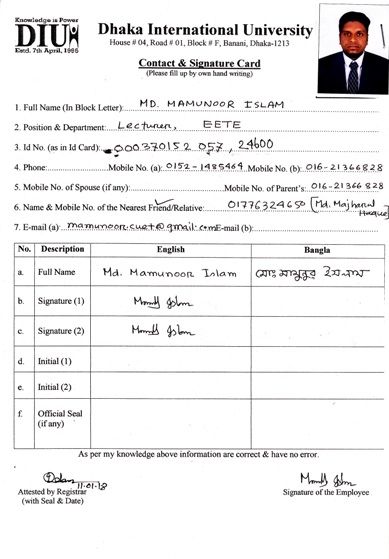 Knowledge is Power
DIU
Estd. 7th April, 1995
Dhaka International University
House # 04, Road # 01, Block # F, Banani, Dhaka-1213
Contact & Signature Card
(Please fill up by own hand writing)
1. Full Name (In Block Letter): MD. MAMUNOOR ISLAM
2. Position & Department: Lecturer, EETE
3. Id No. (as in Id Card): 000370152 057, 24600
4. Phone: Mobile No. (a): 0152-1485464 Mobile No. (b): 016-21366828
5. Mobile No. of Spouse (if any): Mobile No. of Parent's: 016-21366 828
6. Name & Mobile No. of the Nearest Friend/Relative: 01776324650 [Md. Majharul Haque]
7. E-mail (a) mamunoor.cuet@gmail.com E-mail (b):
No. Description English Bangla
a. Full Name Md. Mamunoor Islam মোঃ মামুনুর ইসলাম
b. Signature (1)
c. Signature (2)
d. Initial (1)
e. Initial (2)
f. Official Seal
(if any)
As per my knowledge above information are correct & have no error.
11-01-18
Attested by Registrar
(with Seal & Date)
Signature of the Employee